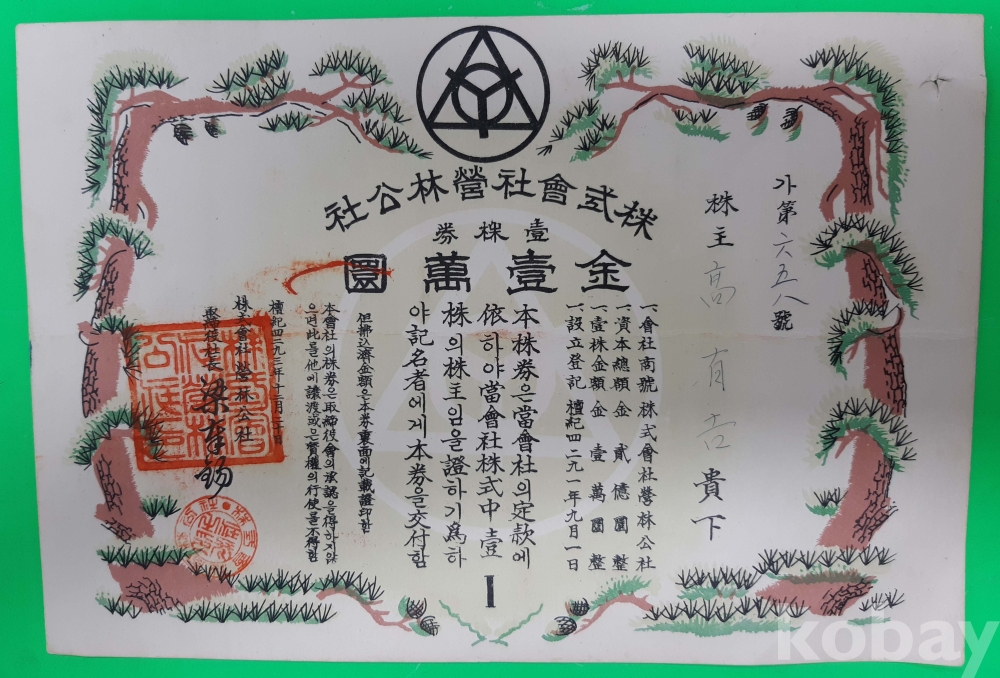 株式會社營林公社
壹株券
金壹萬圓
가第六五八號
株主 高有吉 貴下
一. 會社商號 株式會社營林公社
一. 資本總額 金貳億圓整
一. 壹株金額 金壹萬圓整
一. 設立登記 檀紀四二九一年九月一日
本株券은當會社의定款에
依하야當會社株式中壹
株의株主임을證하기爲하
야記名者에게本券을交付함
但拂込濟金額은本券裏面에記載證印함
本會社의株券은取締役會의承認을得하지않
으면此를他에讓渡或은質權의行使를不得함
檀紀四二九二年十二月二十日
株式會社營林公社
取締役社長
kobay